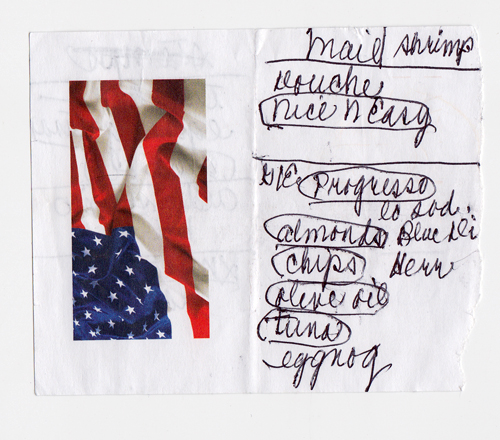 mail shrimp
vouche
nice n easy
GE Progresso
lo sod.
almonds Blue Di
chips Herr
olive oil
tuna
eggnog